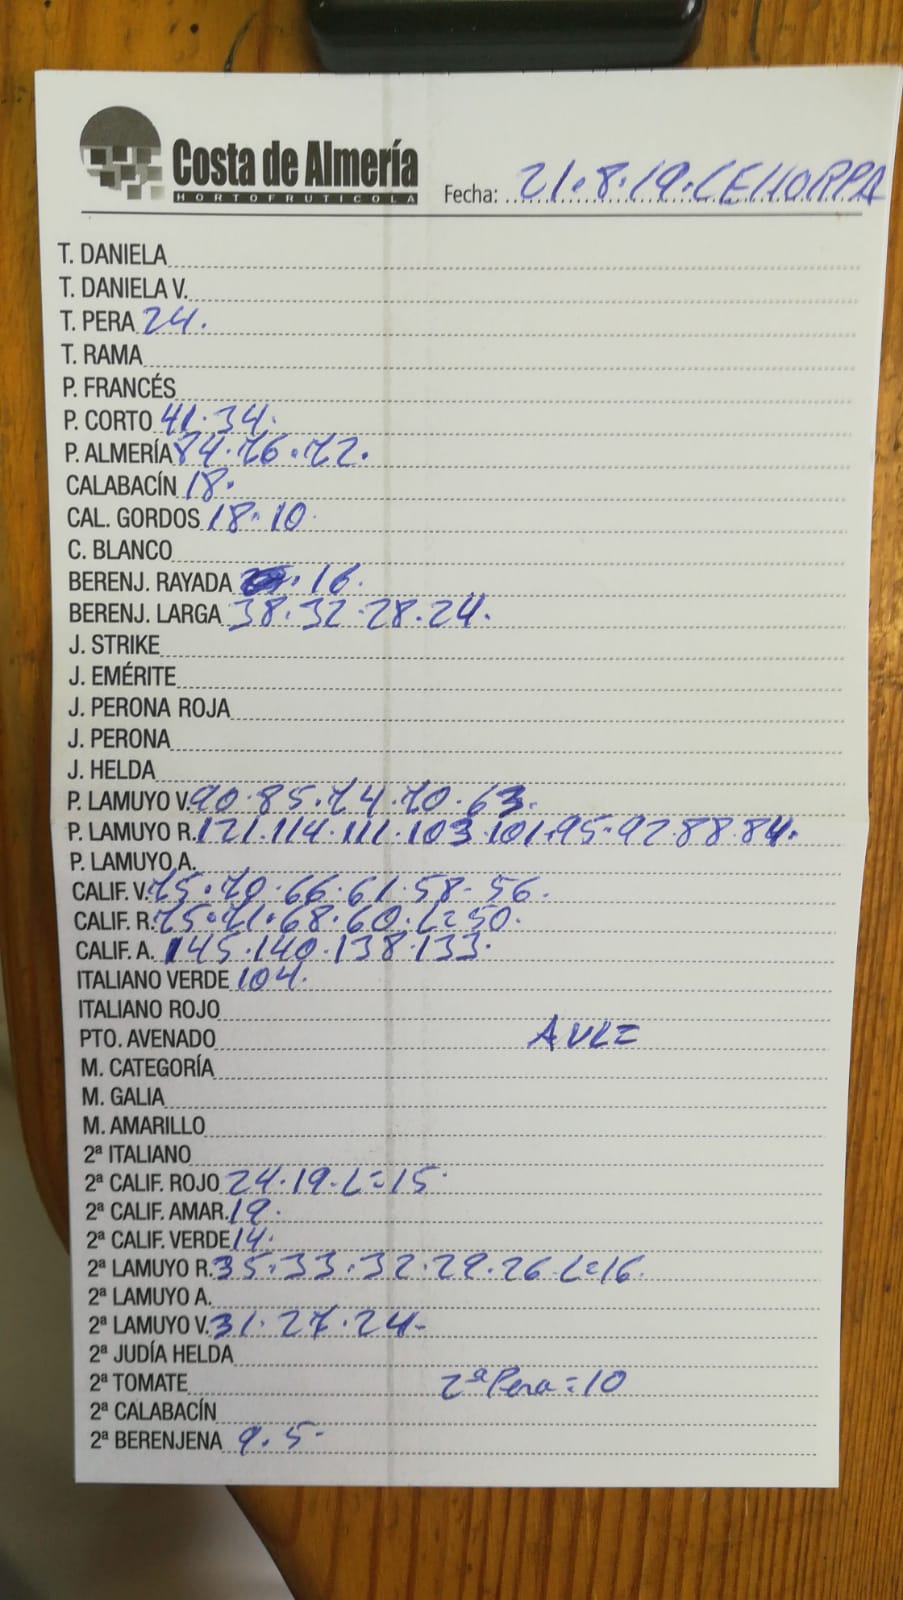 Costa de Almería
HORTOFRUTICOLA
Fecha: 21.8.19. CEHORPA
T. DANIELA
T. DANIELA V.
T. PERA 24.
T. RAMA
P. FRANCÉS
P. CORTO 41.34.
P. ALMERÍA 84.76.72.
CALABACÍN 18.
CAL. GORDOS 18.10
C. BLANCO
BERENJ. RAYADA . 16.
BERENJ. LARGA 38.32.28.24.
J. STRIKE
J. EMÉRITE
J. PERONA ROJA
J. PERONA
J. HELDA
P. LAMUYO V. 90.85.74.70.63.
P. LAMUYO R. 121.114.111.103.101.95.92.88.84.
P. LAMUYO A.
CALIF. V. 75.70.66.61.58.56.
CALIF. R. 75.71.68.60.L=50.
CALIF. A. 145.140.138.133.
ITALIANO VERDE 104.
ITALIANO ROJO
PTO. AVENADO
M. CATEGORÍA
M. GALIA
M. AMARILLO
2ª ITALIANO
2ª CALIF. ROJO 24.19.L=15.
2ª CALIF. AMAR. 19.
2ª CALIF. VERDE 14.
2ª LAMUYO R. 35.33.32.29.26.L=16.
2ª LAMUYO A.
2ª LAMUYO V. 31.27.24.
2ª JUDÍA HELDA
2ª TOMATE 2ª Pera=10
2ª CALABACÍN
2ª BERENJENA 9.5.